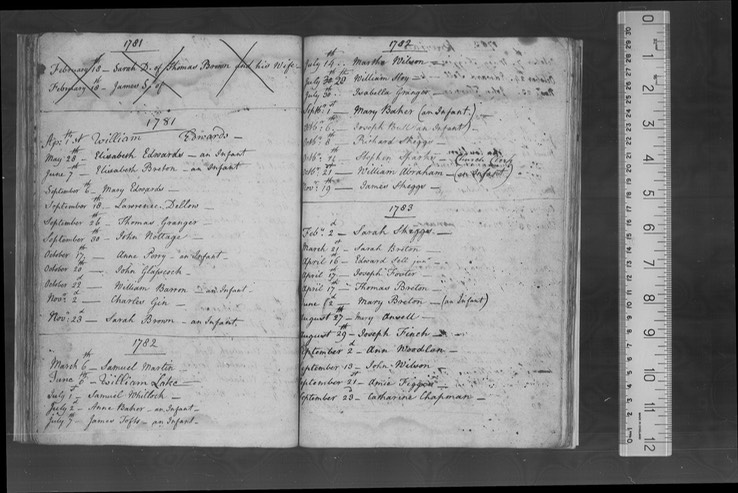 1781
February 18 — Sarah D. of Thomas Brown and his Wife —
February 18 — James S. of
1781
William Edwards —
May 28th — Elisabeth Edwards — an Infant
June 7 — Elisabeth Breton — an Infant
September 6 — Mary Edwards —
September 18th — Lawrence Dellow
September 26th — Thomas Granger —
September 30th — John Nottage —
October 17th — Anne Perry — an Infant —
October 20th — John Glasscock —
October 22d — William Barron — an Infant
Novr. 2d — Charles Gin —
Novr. 23d — Sarah Brown — an Infant
1782
March 6th — Samuel Martin —
June — William Lake —
July 1st — Samuel Whitlock —
July 2d — Anne Baker — an Infant —
July 7th — James Tofts — an Infant —
1782
July 14th — Martha Wilson —
July William Hoy —
July 30th — Isabella Granger —
Septbr. 1st — Mary Baker (an Infant)
6 — Joseph Bull (an Infant)
8 — Richard Skeggs —
Octbr. — Stephen Sparke — (Church Clerk
Octbr. 21st — William Abraham — (an Infant)
Novr. 19th — James Skeggs —
1783
Febr. 2d — Sarah Skeggs —
March 21st — Sarah Breton
April 16th — Edward Sell junr —
April 17th — Joseph Foster
April 17th — Thomas Breton —
June — Mary Breton — (an Infant)
August 27th — Mary Ansell —
August 29th — Joseph Finch —
September 2d — Ann Woodlan —
September 13 — John Wilson
September 21st — Amie Figgon —
September 23d — Catharine Chapman —
0 1 2 3 4 5 6 7 8 9 10 11 12